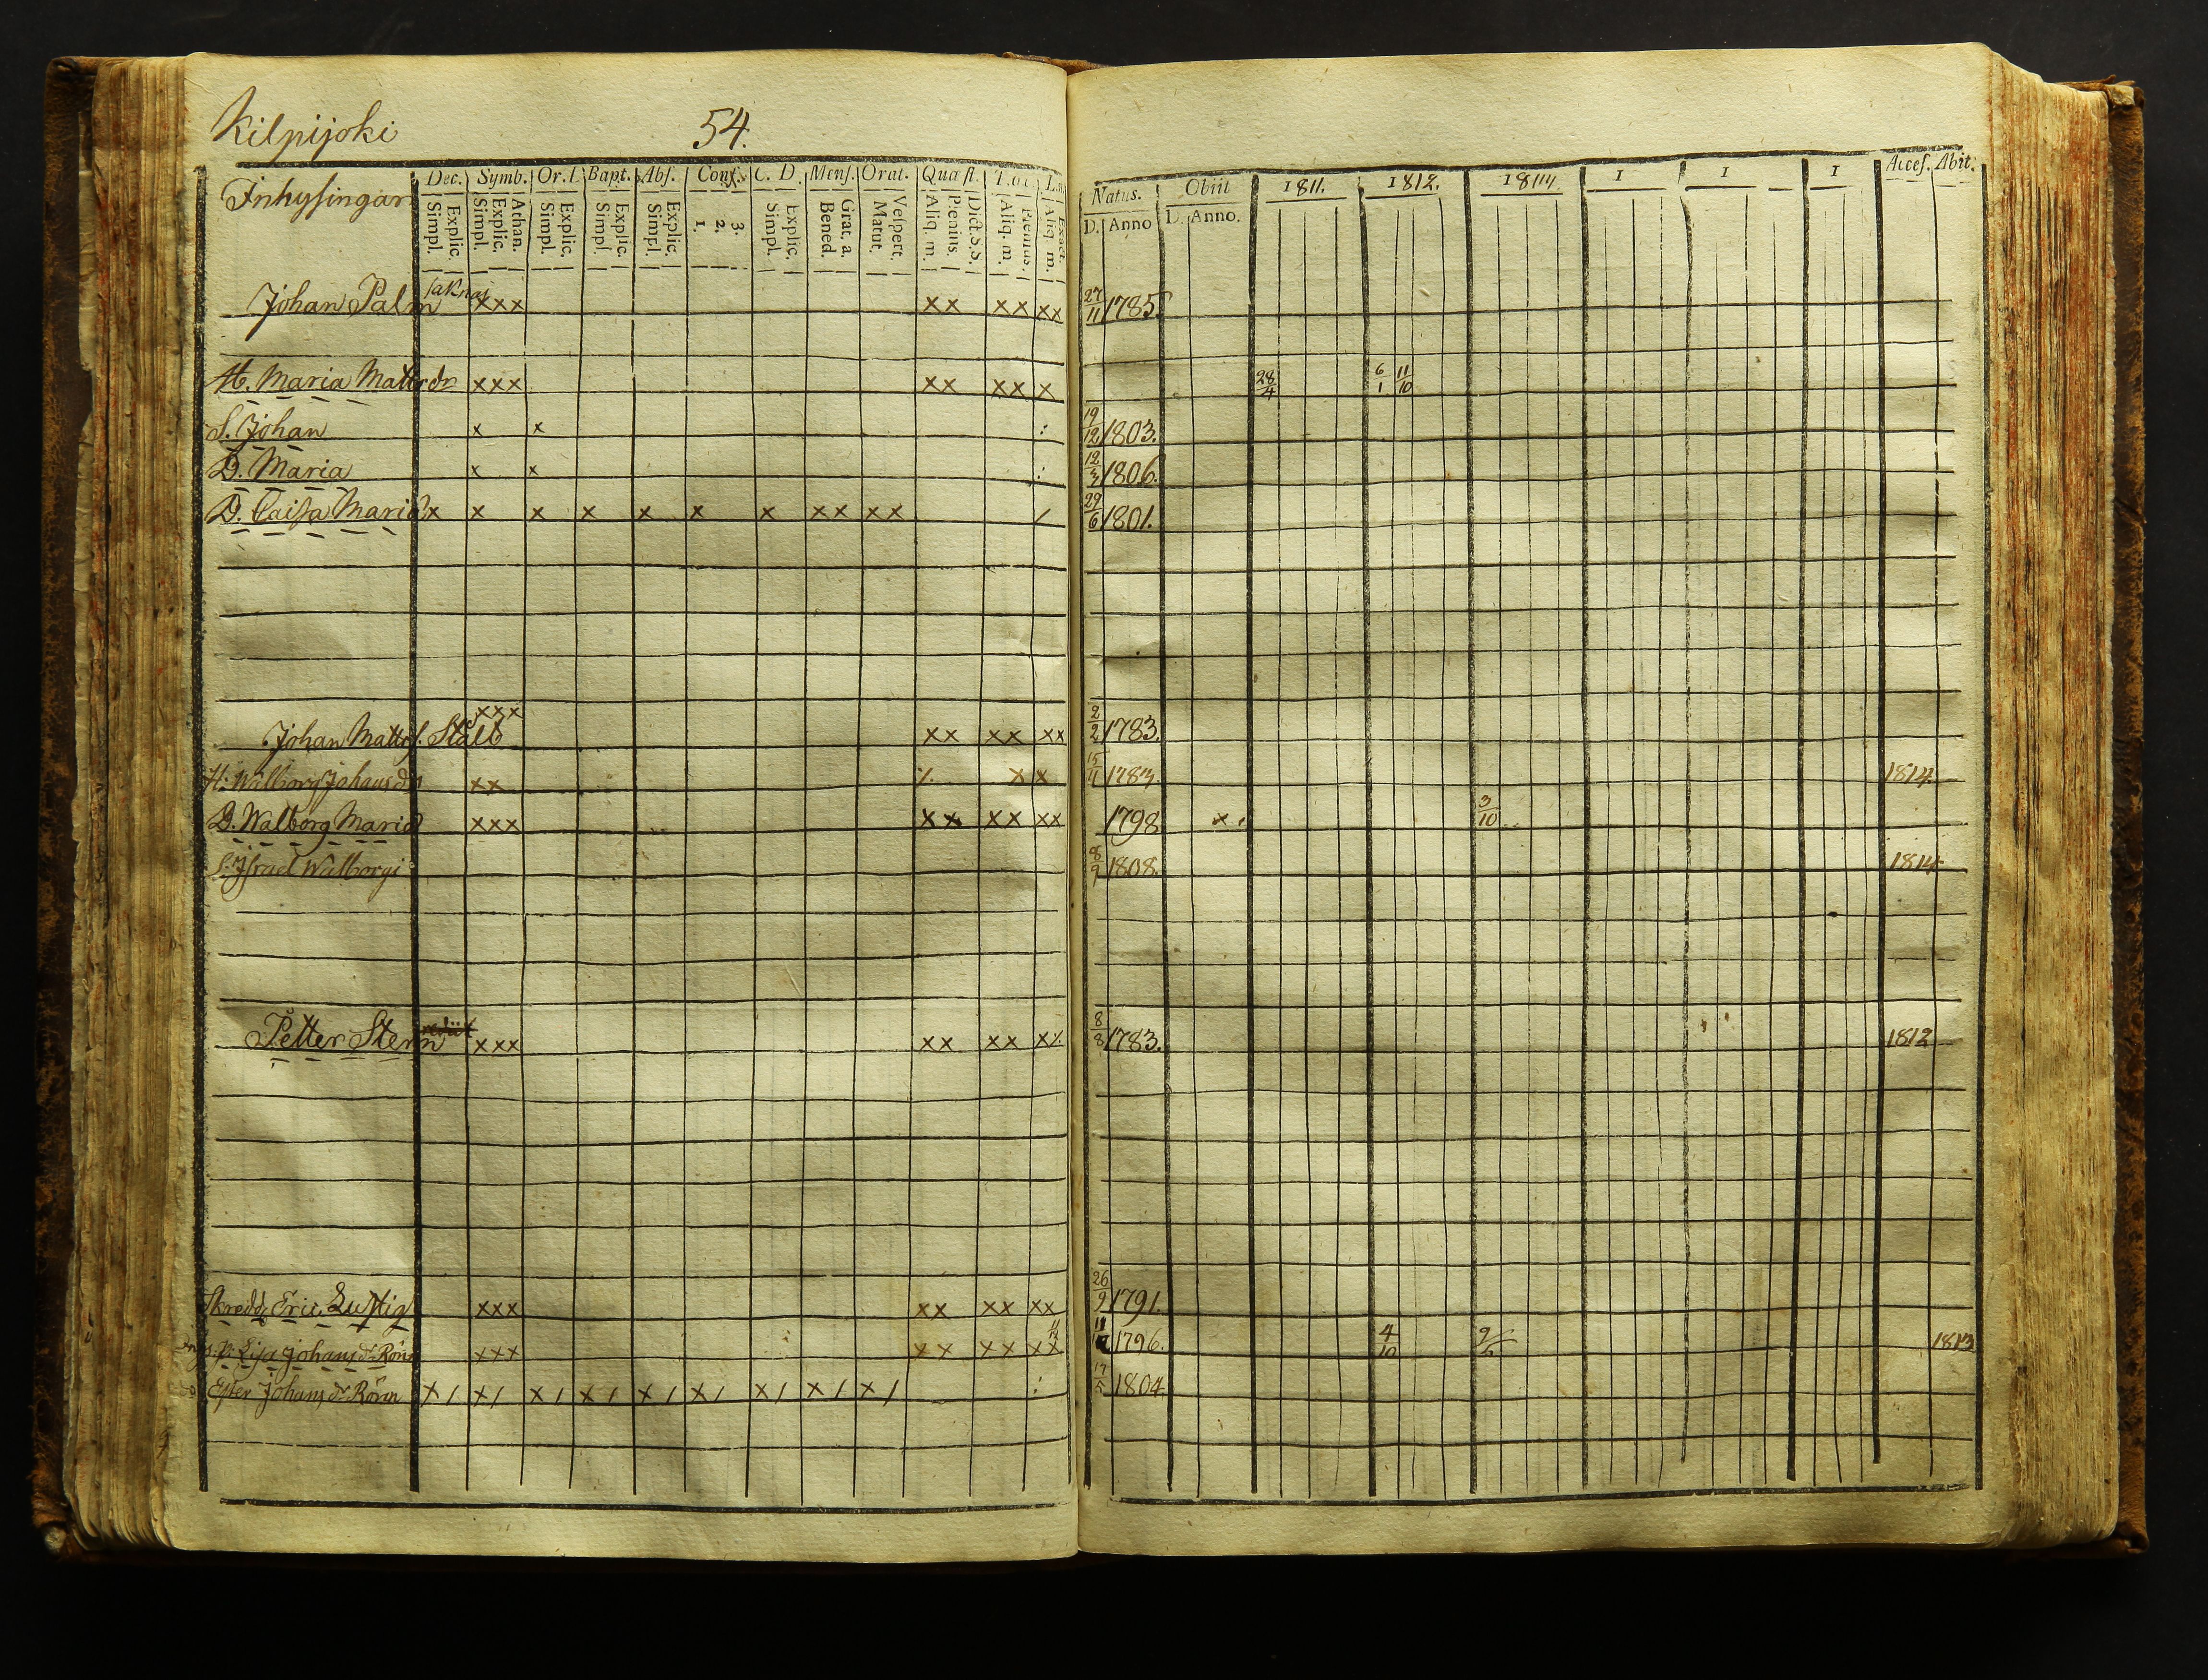 Kilpijoki 54.
Dec. Symb. Or. Bapt. Abſ. Conf. C. D. Menſ. Orat. Quæſt. Natus. Obiit 1811. 1812. 1814 1 1 1 Acceſ. Abit.
Inhyſingar
Explic. Simpl. Athan. Explic. Simpl. Explic. Simpl. Explic. Simpl. Explic. Simpl. 3. 2. 1. Explic. Simpl. Grat. a. Bened. Veſpert. Matut. Dict. S.S. Plenius. Aliq. m. Plenius. Aliq. m. Exact. Aliq. m. D. Anno D. Anno.
Johan Palm ſaknas xxx xx xx xx 27/11 1785
H. Maria Mattsdr xxx xx xx x 28/4 6/1 11/10
S. Johan x x : 19/12 1803.
D. Maria x x : 12/3 1806.
D. Caiſa Maria x x x x x x x xx xx / 29/6 1801.
Johan Mattsſ. Stålb xxx xx xx xx 2/2 1783.
H. Walborg Johansdr xx x x 15/11 1814
D. Walborg Maria xxx xx xx xx 1798 x. 3/10
S. Iſrael Walborgi 8/9 1808. 1814
Petter Stern xxx xx xx x 8/8 1783. 1812
Skrädd. Eric Luſtig xxx xx xx xx 26/9 1791.
Liſa Johansdr Rönn xxx xx xx xx 1796. 4/10 1813
Eſter Johansdr Rönn x/ x/ x/ x/ x/ x/ x/ x/ x/ : 17/5 1804